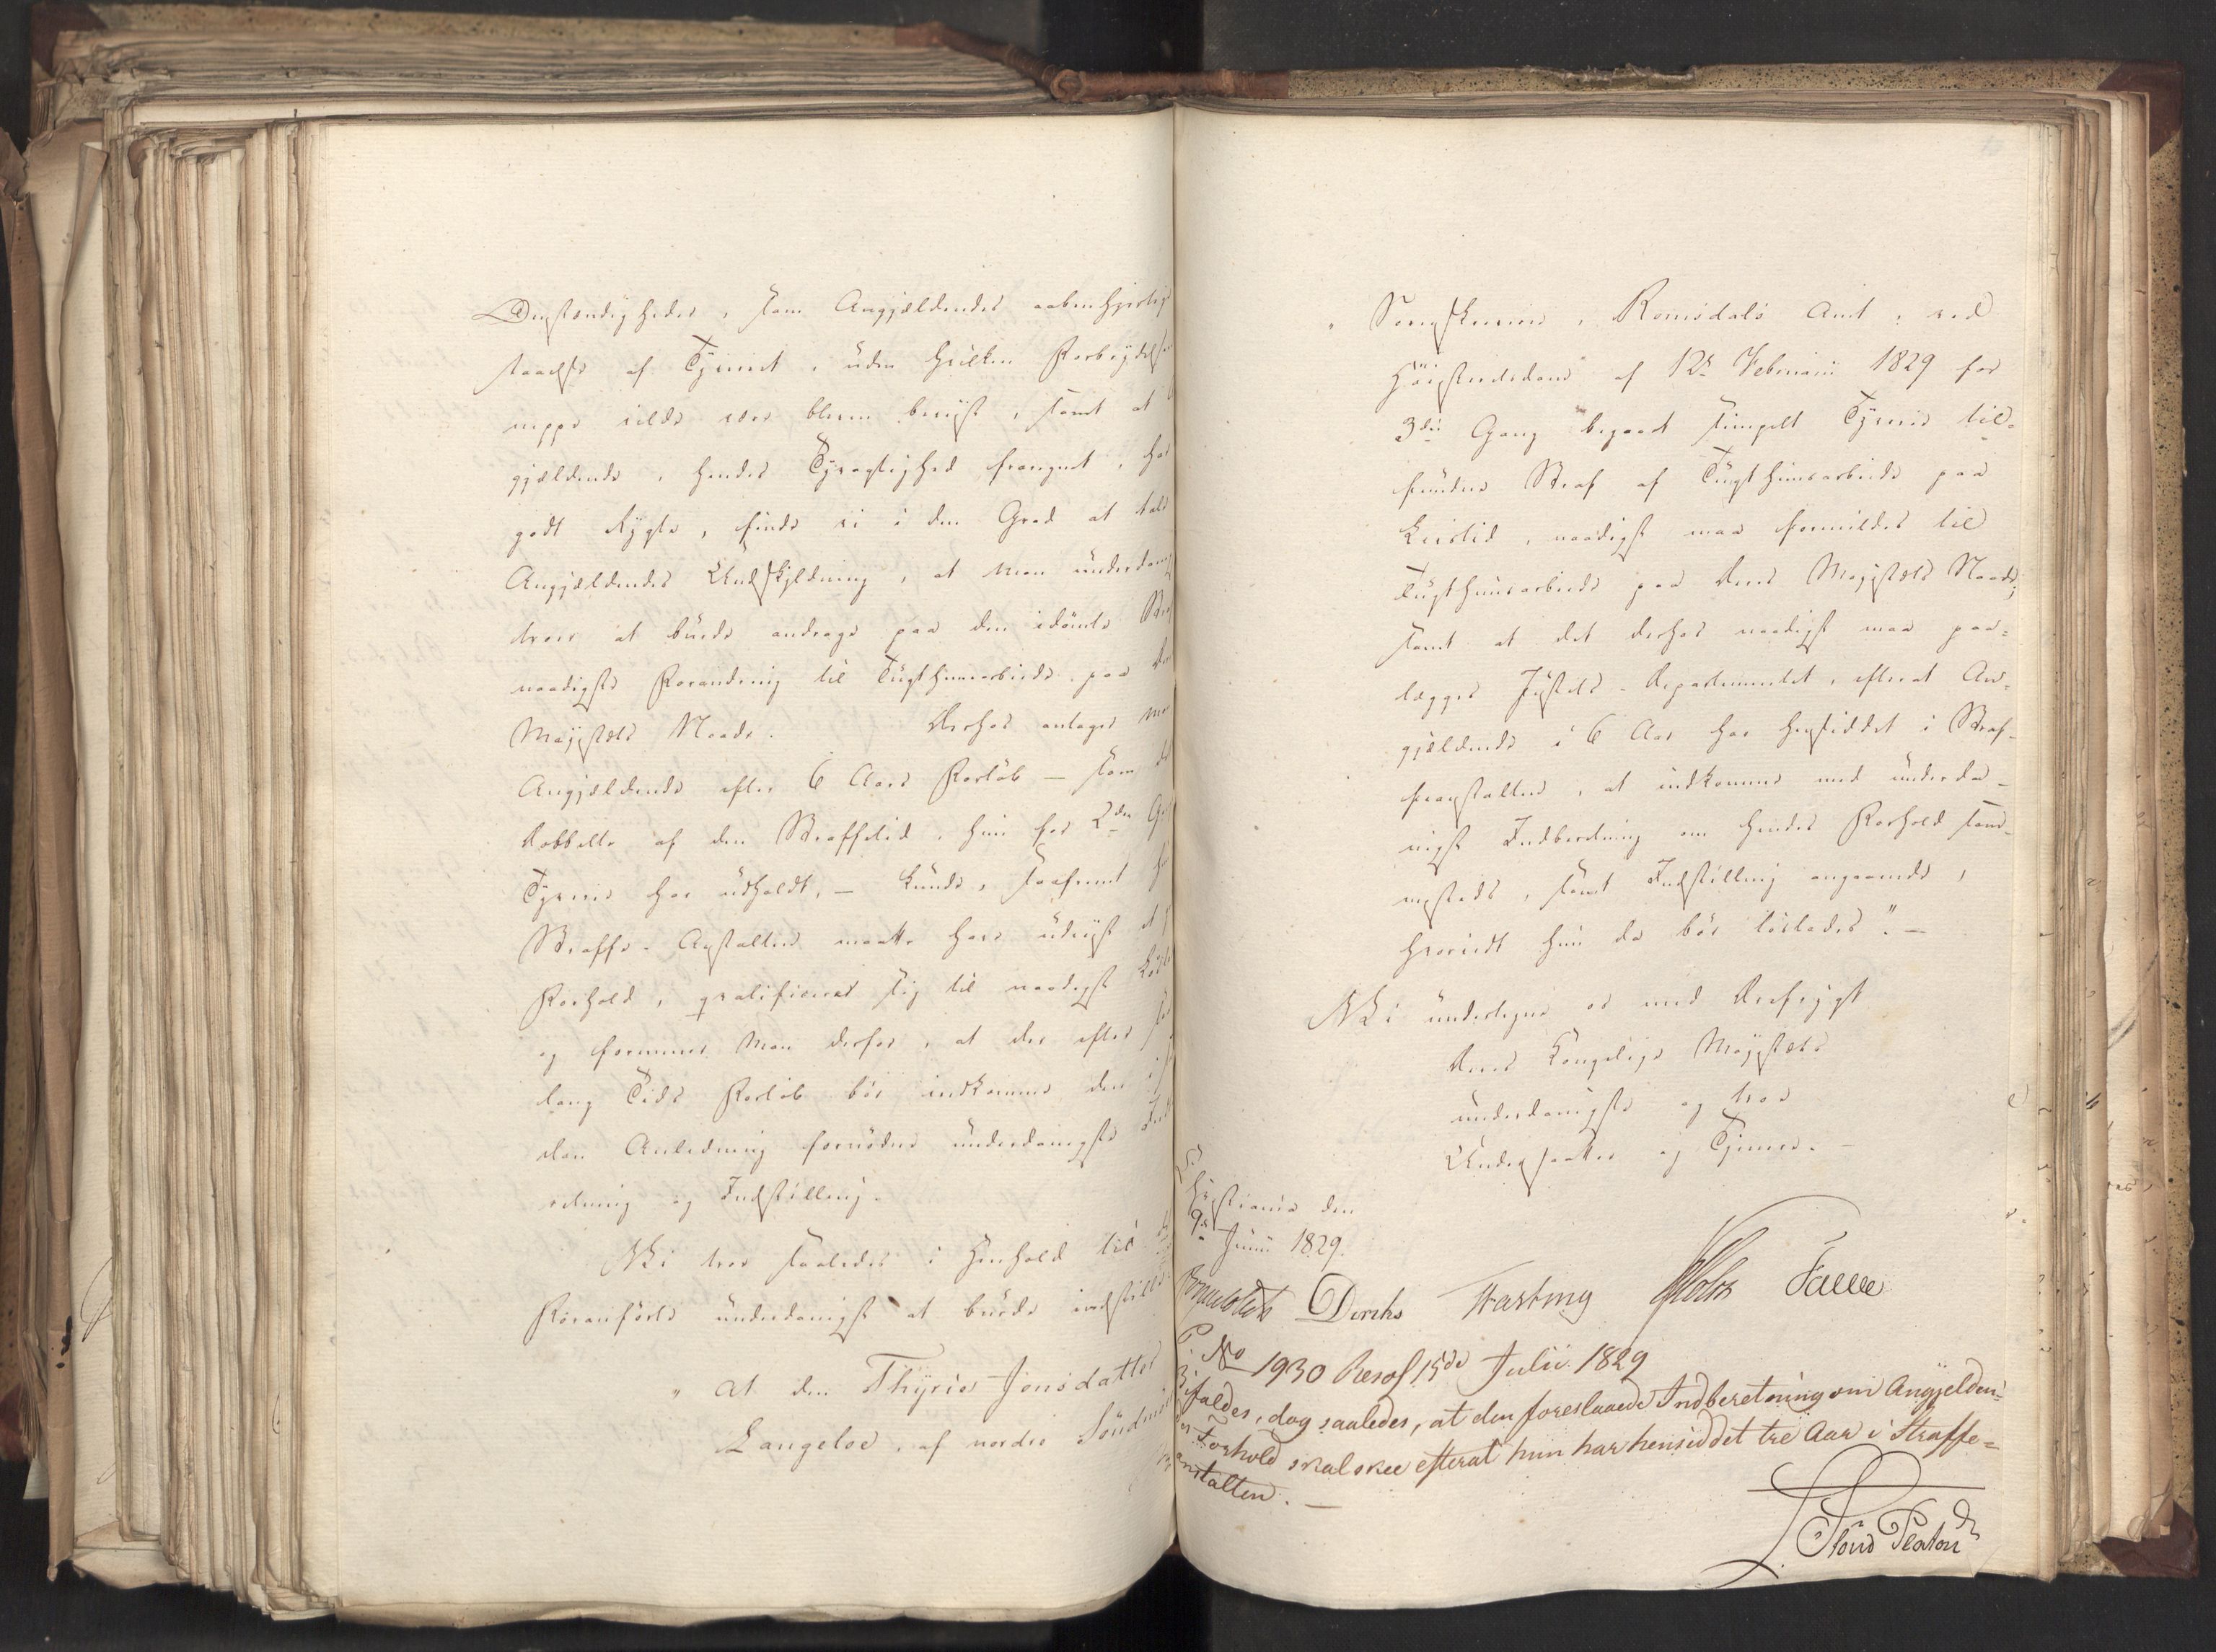 Omstændigheder, som Angjældendes aabenhjertige
staaelse af Tyveriet, uden hvilken Forbrydelsen
neppe vilde være bleven beviist, samt at
gjældende, hendes Tyvagtighed fraregnet, har
godt Rygte, finde vi i den Grad at tale
Angjældendes Undskyldning, at Man underdanigst
troer at burde andrage paa den idømte Straf
naadigste Forandring til Tugthuusarbeide paa De
Majestæts Naade. Derhos antages me
Angjældende efter 6 Aars Forløb – som de
dobbelte af den Straffetid, hun for 2den Ga
Tyverie har udholdt, – kunde, saafremt hu
Straffe-Anstalten maatte have udviist et
Forhold, qvalificeret sig til naadigst Løsla
og formener Man derfor, at der efter sa
lang Tids Forløb bør indkomme den i
den Anledning fornødne underdanigste Ind
retning og Indstilling.
Vi troe saaledes i Henhold til d
Foranførte underdanigst at burde indstille:
„at den Thyrie Jonsdatter
Langeloe, af nordre Søndmør
„Sorenskriverie, Romsdals Amt, ved
Høiesteretsdom af 12te Februarii 1829 for
3die Gang begaaet simpelt Tyverie til-
fundne Straf af Tugthuusarbeide paa
Livstid, naadigst maa formildes til
Tugthuusarbeide paa Deres Majestæts Naade;
samt at det derhos naadigst maa paa-
lægges Justits-Departementet, efterat An-
gjældende i 6 Aar har hensiddet i Straf-
feanstalten, at indkomme med underda-
nigst Indberetning om hendes Forhold sam-
mesteds, samt Indstilling angaaende,
hvorvidt hun da bør løslades". –
Vi undertegne os med Ærefrygt
Deres Kongelige Majestæts
underdanigste og troe
Undersaatter og Tjenere. –
Christiania den
9de Junii 1829.
Diriks Fasting Holst Falbe
P. No 1930 Resol. 15de Julii 1829
Bifaldes, dog saaledes, at den foreslaaede Indberetning om Angjelden-
des Forhold skal skee efterat hun har hensiddet tre Aar i Straffe-
anstalten. –
Stoud Platou